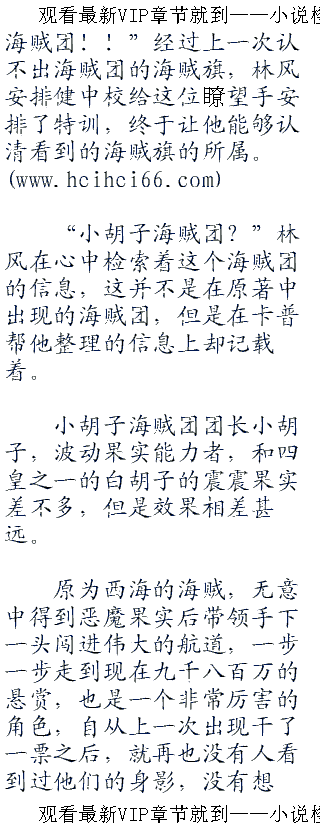 观看最新VIP章节就到——小说检
海贼团！！”经过上一次认
不出海贼团的海贼旗，林风
安排健中校给这位瞭望手安
排了特训，终于让他能够认
清看到的海贼旗的所属。
(www.hcihci66.com)
“小胡子海贼团？”林
风在心中检索着这个海贼团
的信息，这并不是在原著中
出现的海贼团，但是在卡普
帮他整理的信息上却记载
着。
小胡子海贼团团长小胡
子，波动果实能力者，和四
皇之一的白胡子的震震果实
差不多，但是效果相差甚
远。
原为西海的海贼，无意
中得到恶魔果实后带领手下
一头闯进伟大的航道，一步
一步走到现在九千八百万的
悬赏，也是一个非常厉害的
角色，自从上一次出现干了
一票之后，就再也没有人看
到过他们的身影，没有想
观看最新VIP章节就到——小说检